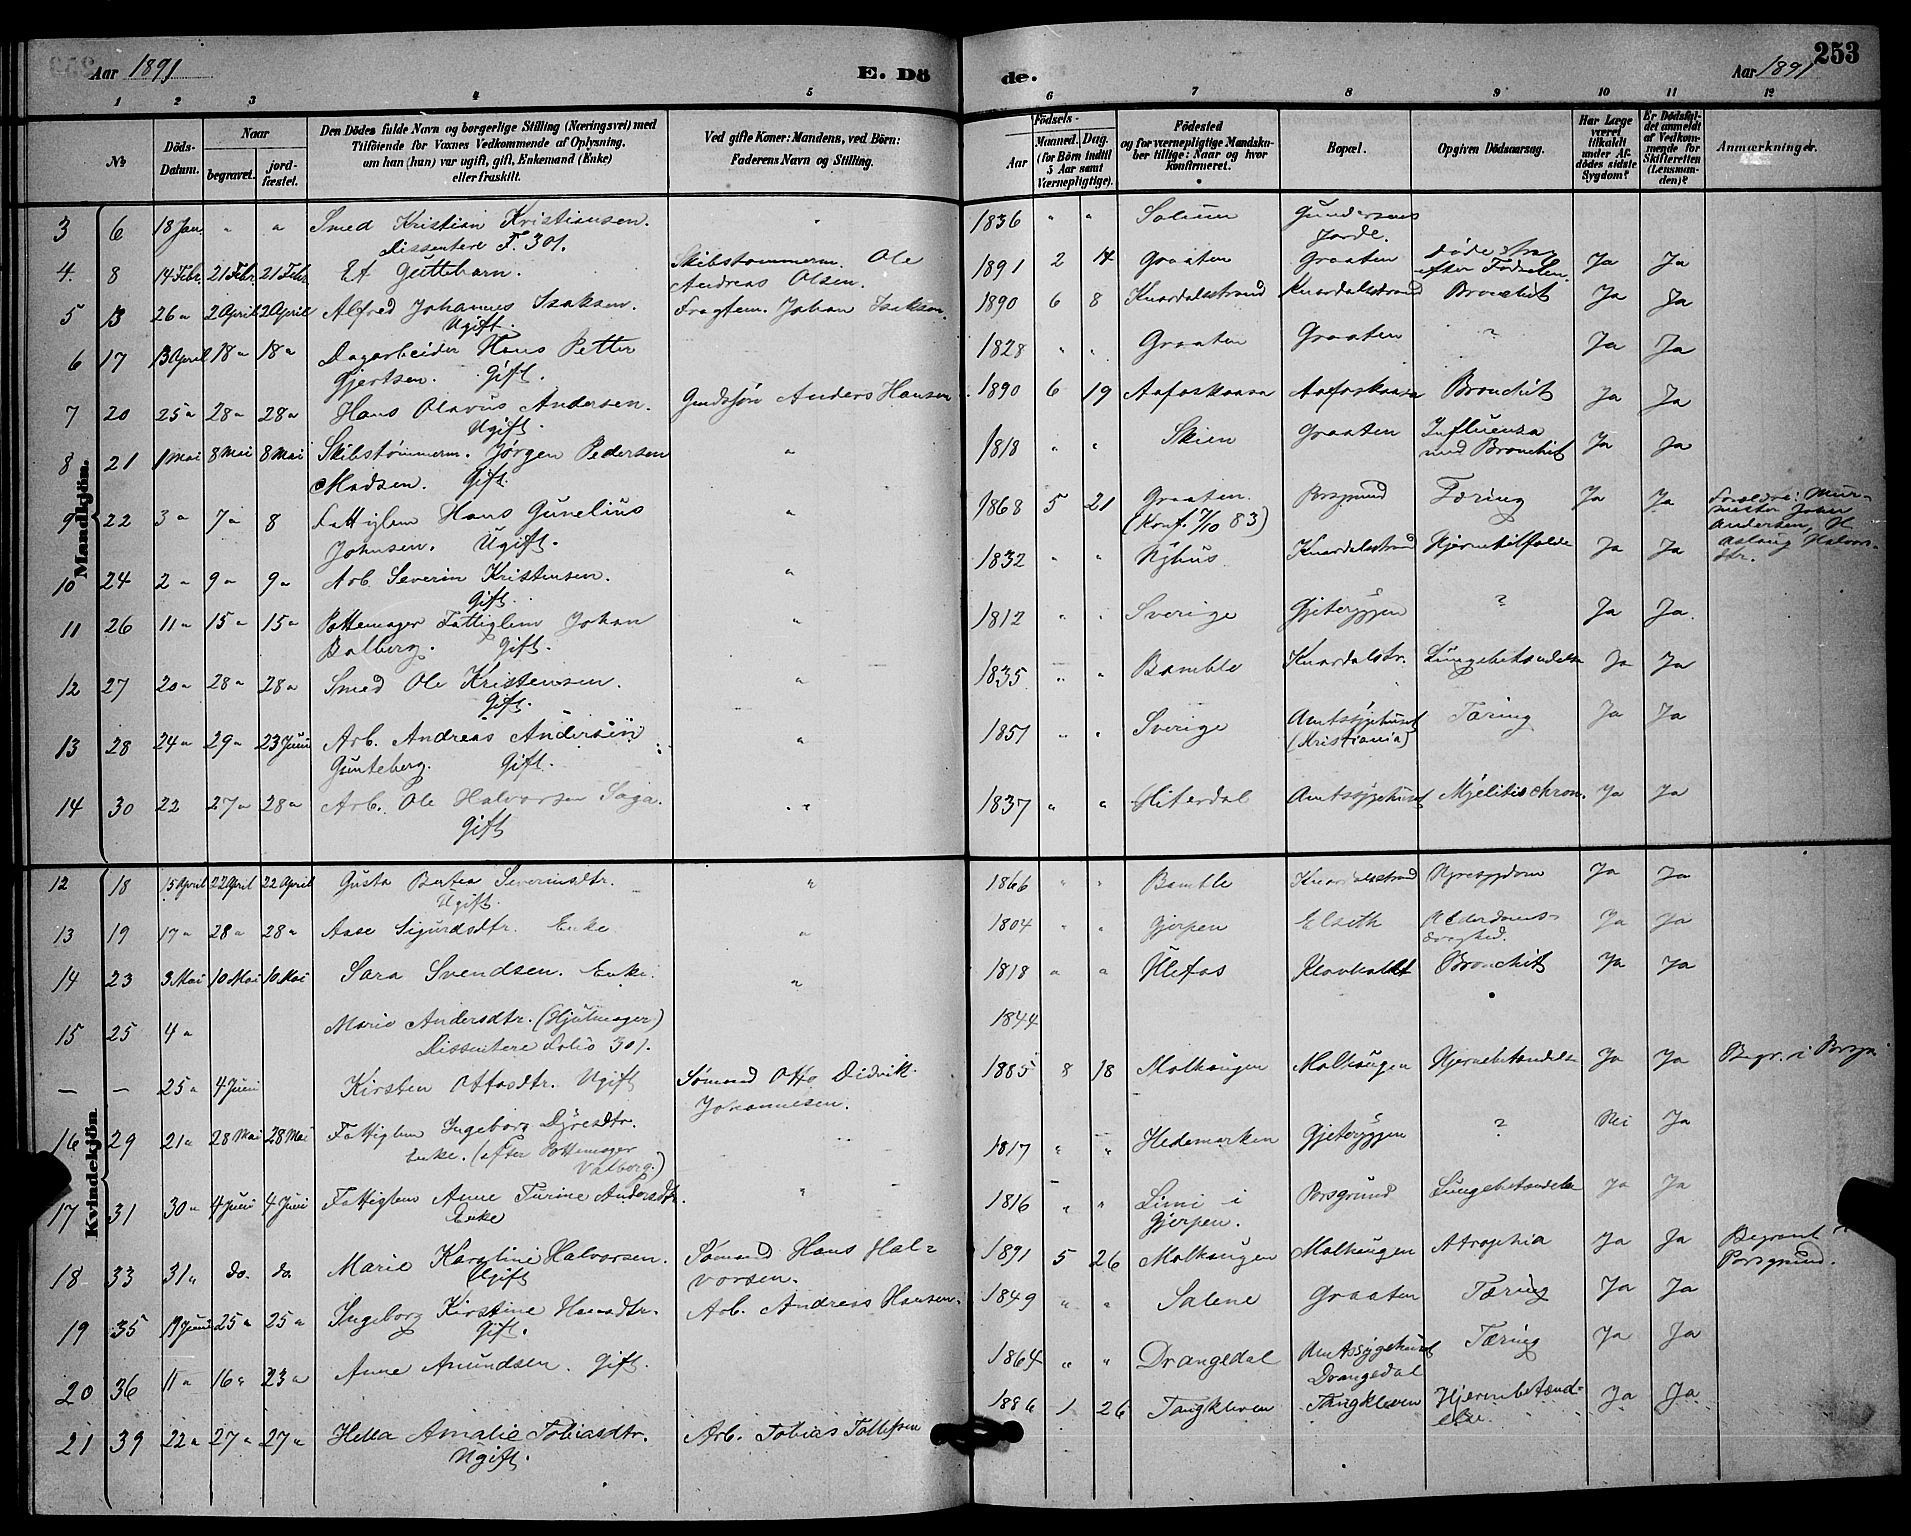 Aar 1891
E. Dö
1 2 3 4 5
№
Döds-Datum.
Naar
begravet.
jord-fæstet.
Den Dödes fulde Navn og borgerlige Stilling (Næringsvei) med
Tilföiende for Voxnes Vedkommende af Oplysning,
om han (hun) var ugift, gift, Enkemand (Enke)
eller fraskilt.
Ved gifte Koner: Mandens, ved Börn:
Faderens Navn og Stilling.
Mandkjön.
3 6 18 Jan. " " Smed Kristian Kristiansen. "
Dissentere F. 301.
4. 8 14 Febr. 21 Febr. 21 Febr. Et Guttebarn. Skibstømmerm. Ole
Andreas Olsen.
5 13 26 " 2 April 2 April Alfred Johannes Isaksen. Fragtem. Johan Isaksen.
Ugift.
6 17 13 April 18 " 18 " Dagarbeider Hans Petter
Gjertsen. Gift.
7 20 25 " 28 " 28 " Hans Olavus Andersen. Anders Hansen
Ugift.
8 21 1 Mai 8 Mai 8 Mai Skibstømmerm. Jørgen Pedersen "
Madsen. Gift.
9 22 3 " 7 " 8 Fattiglem Hans Gunelius "
Johnsen. Ugift.
10 24 2 " 9 " 9 " Arb. Severin Kristensen. "
Gift.
11 26 11 " 15 " 15 " Pottemager Fattiglem Johan "
Balberg. Gift.
12 27 20 " 28 " 28 " Smed Ole Kristensen. "
Gift.
13 28 24 " 29 " 23 Juni Arb. Andreas Andersen "
Gunteberg. Gift.
14 30 22 27 " 28 " Arb. Ole Halvorsen Saga. "
Gift
Kvindekjön
12 18 15 April 22 April 22 April Gusta Bertea Severinsdtr. "
Ugift.
13 19 17 " 28 " 28 " Aase Sigurdsdtr. Enke "
14 23 3 Mai 10 Mai 10 Mai Sara Svendsen. Enke. "
15 25 4 " Marie Andersdtr. (Hjulmager)
Dissentere Folio 301.
— — 25 " 4 Juni Kirsten Ottosdtr. Ugift Sømand Otto Didrik
Johannesen.
16 29 21 " 28 Mai 28 Mai Fattiglem Ingeborg Dyresdtr. "
Enke. (efter Pottemager
Valborg.)
17 31 30 " 4 Juni 4 Juni Fattiglem Anne Turine Andersdtr. "
Enke
18 33 31 " do. do. Marie Karoline Halvorsen. Sømand Hans Hal=
Ugift vorsen.
19 35 19 Juni 25 " 25 " Ingeborg Kirstine Hansdtr. Arb. Andreas Hansen.
Gift.
20 36 11 " 16 " 23 " Anne Amundsen. Gift.
21 39 22 " 27 " 27 " Helka Amalie Tobiasdtr. Arb. Tobias Tollefsen
Ugift.
de.
Aar 1891
253
6 7 8 9 10 11 12
Födsels-
Aar
Maaned. Dag.
(for Börn indtil
5 Aar samt
Værnepligtige).
Födested
og for værnepligtige Mandsku-
ber tillige: Naar og hvor
konfirmeret.
Bopæl.
Opgiven Dödsaarsag.
Har Læge
været
tilkaldt
under Af-
dödes sidste
Sygdom?
Er Dödsfal-
det anmeldt
af Vedkom-
mende for
Skifteretten
(Lensman-
den)?
Anmærkninger.
1836 " " Solum Gundersens
Jorde.
1891 2 14 Graaten Graaten døde strax Ja Ja
efter Fødselen.
1890 6 8 Knardalsstrand Knardalsstrand Bronchit Ja Ja
1828 " " Graaten Graaten ? Ja Ja
1890 6 19 Aafoskaasa Aafoskaasa Bronchit Ja Ja
1818 " " Skien Graaten Influensa Ja Ja
med Bronchit
1868 5 21 Graaten. Porsgrund Tæring Ja Ja Forældre: Mur-
(Konf. 7/10 83) mester John
Andersen, H.
Aslaug Halvors-
dtr.
1832 " " Nyhus Knardalsstrand Hjernetilfælde Ja Ja
1812 " " Sverige Gjeteryggen ? Ja Ja.
1835 " " Bamble Knardalstr. Lungebetændelse Ja Ja
1851 " " Sverige Amtssygehuset Tæring Ja Ja
(Kristiania)
1837 " " Hiterdal Amtssygehuset Myelitis chron. Ja Ja
1866 " " Bamble Knardalsstrand Nyresygdom Ja Ja
1804 " " Gjerpen Elseth Alderdoms- Ja Ja
1818 " " Ulefos Klovholt Bronchit Ja Ja
1844
1885 8 18 Molhaugen Molhaugen Hjernebetændelse Ja Ja Begr. i Porsgr.
1817 " " Hedemarken Gjeteryggen ? Nei Ja
1816 " " Limi i Porsgrund Lungebetændelse Ja Ja
Gjerpen.
1891 5 26 Molhaugen Molhaugen Atrophia Ja Ja Begravet i
Porsgrund.
1849 " " Salene Graaten Tæring Ja Ja
1864 " " Drangedal Amtssygehuset Tæring Ja Ja
Drangedal
1886 1 26 Tangkleven Tangkleven Hjernebetænd= Ja Ja
else.